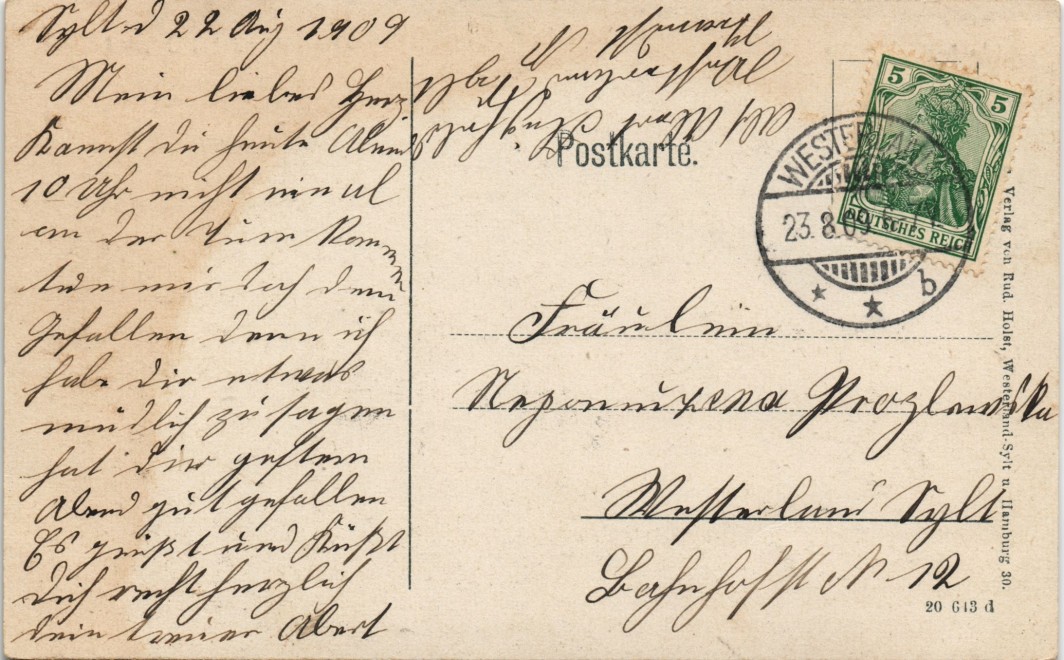 Sylt d 22 Aug 1909
Mein liebes Herz
Kannst du heute Abend
10 Uhr nicht
an der Turm kommen
tue mir doch den
Gefallen denn ich
habe dir etwas
mündlich zu sagen
hat dir gestern
Abend gut gefallen
Es grüßt und Küßt
dich recht herzlich
dein treuer Abert
Postkarte.
5 5
DEUTSCHES REICH
WESTERLAND
23.8.09
b
Fräulein
Westerland Sylt
Bahnhofst N 12
Verlag von Rud. Holst, Westerland-Sylt u. Hamburg 30.
20 643 d